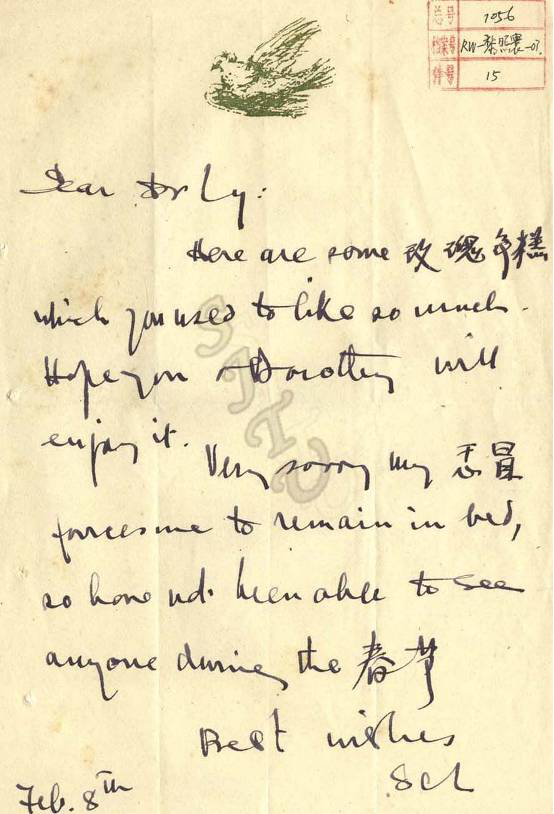 总号 1056
档案号 RW-黎照寰-07
件号 15
Dear Dr Ly:
Here are some 玫瑰年糕
which you used to like so much.
Hope you & Dorothy will
enjoy it.
Very sorry my 患冒
forces me to remain in bed,
so have not been able to see
anyone during the 春节
Best wishes
SCL
Feb. 8th
SJTU